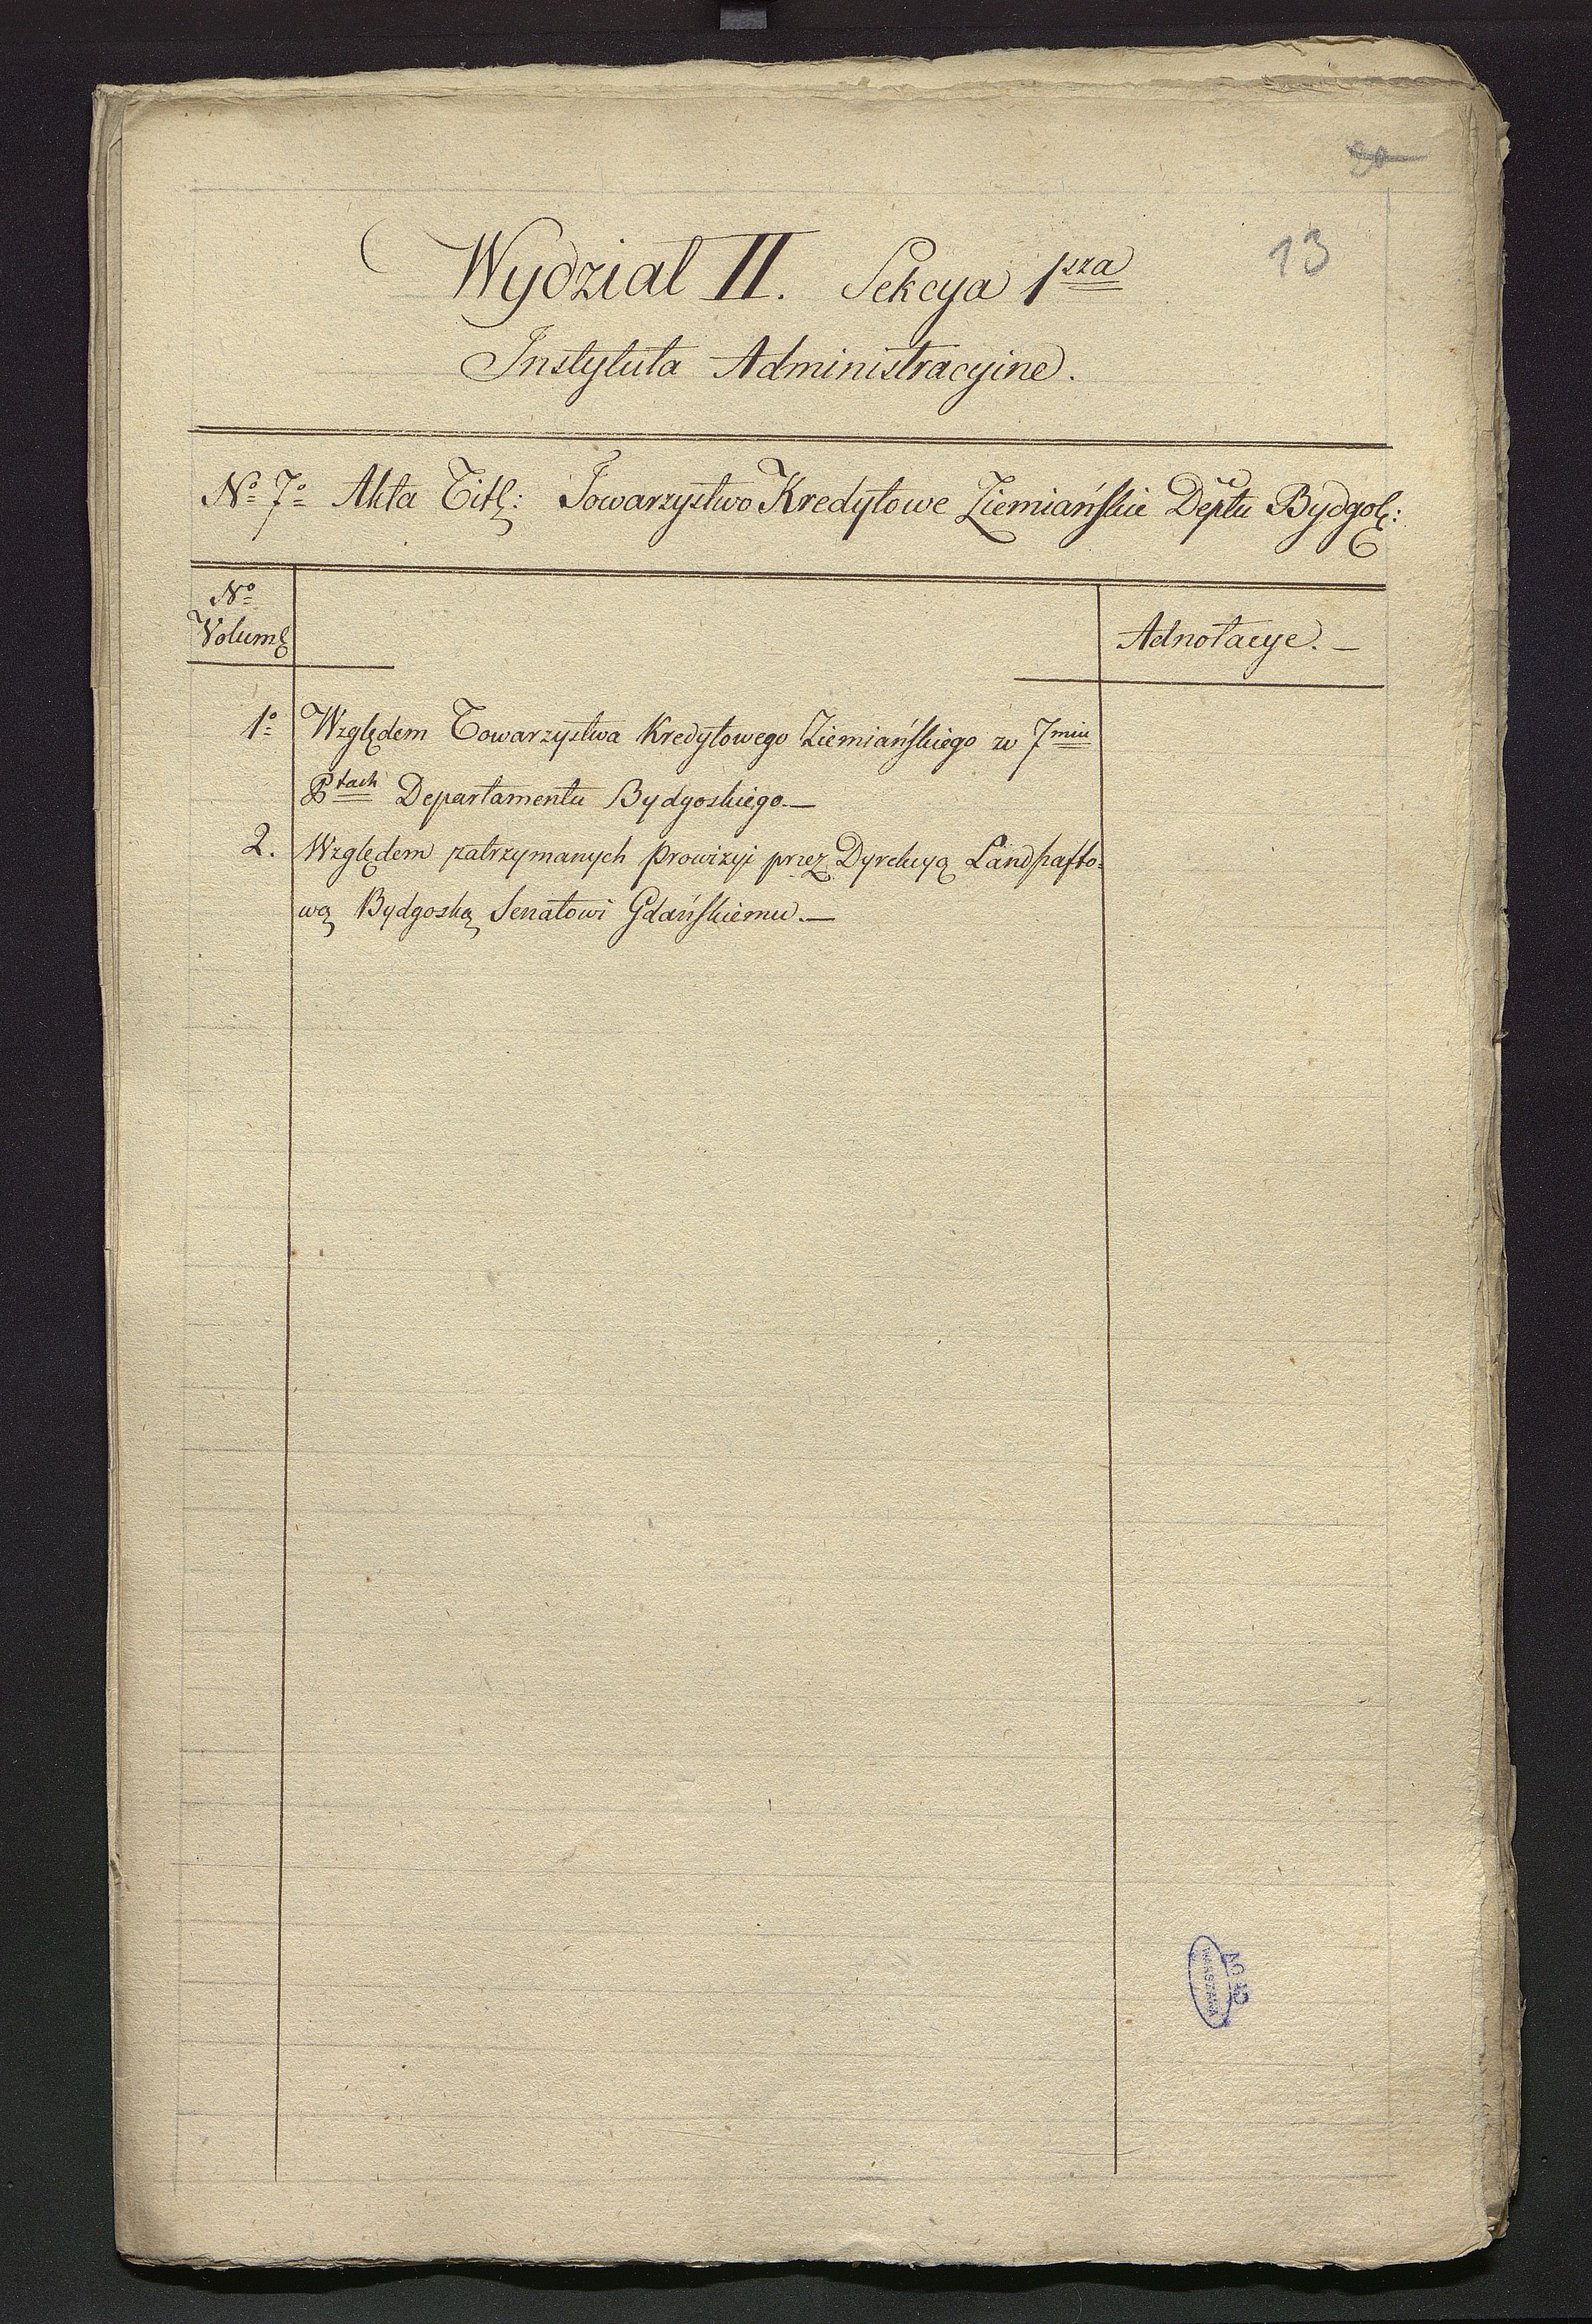 20
13
Wydział II. Sekcya 1sza
Instytuta Administracyine.
No 7o Akta Titł: Towarzystwo Kredytowe Ziemiańskie Deptu Bydgos:
No
Volum
Adnotacye. —
1o Względem Towarzystwa Kredytowego Ziemiańskiego w 7miu
Ptach Departamentu Bydgoskiego. —
2. Względem zatrzymanych prowizyi przez Dyrekcyą Landszafto-
wą Bydgoską Senatowi Gdańskiemu. —
AGAD
WARSZAWA